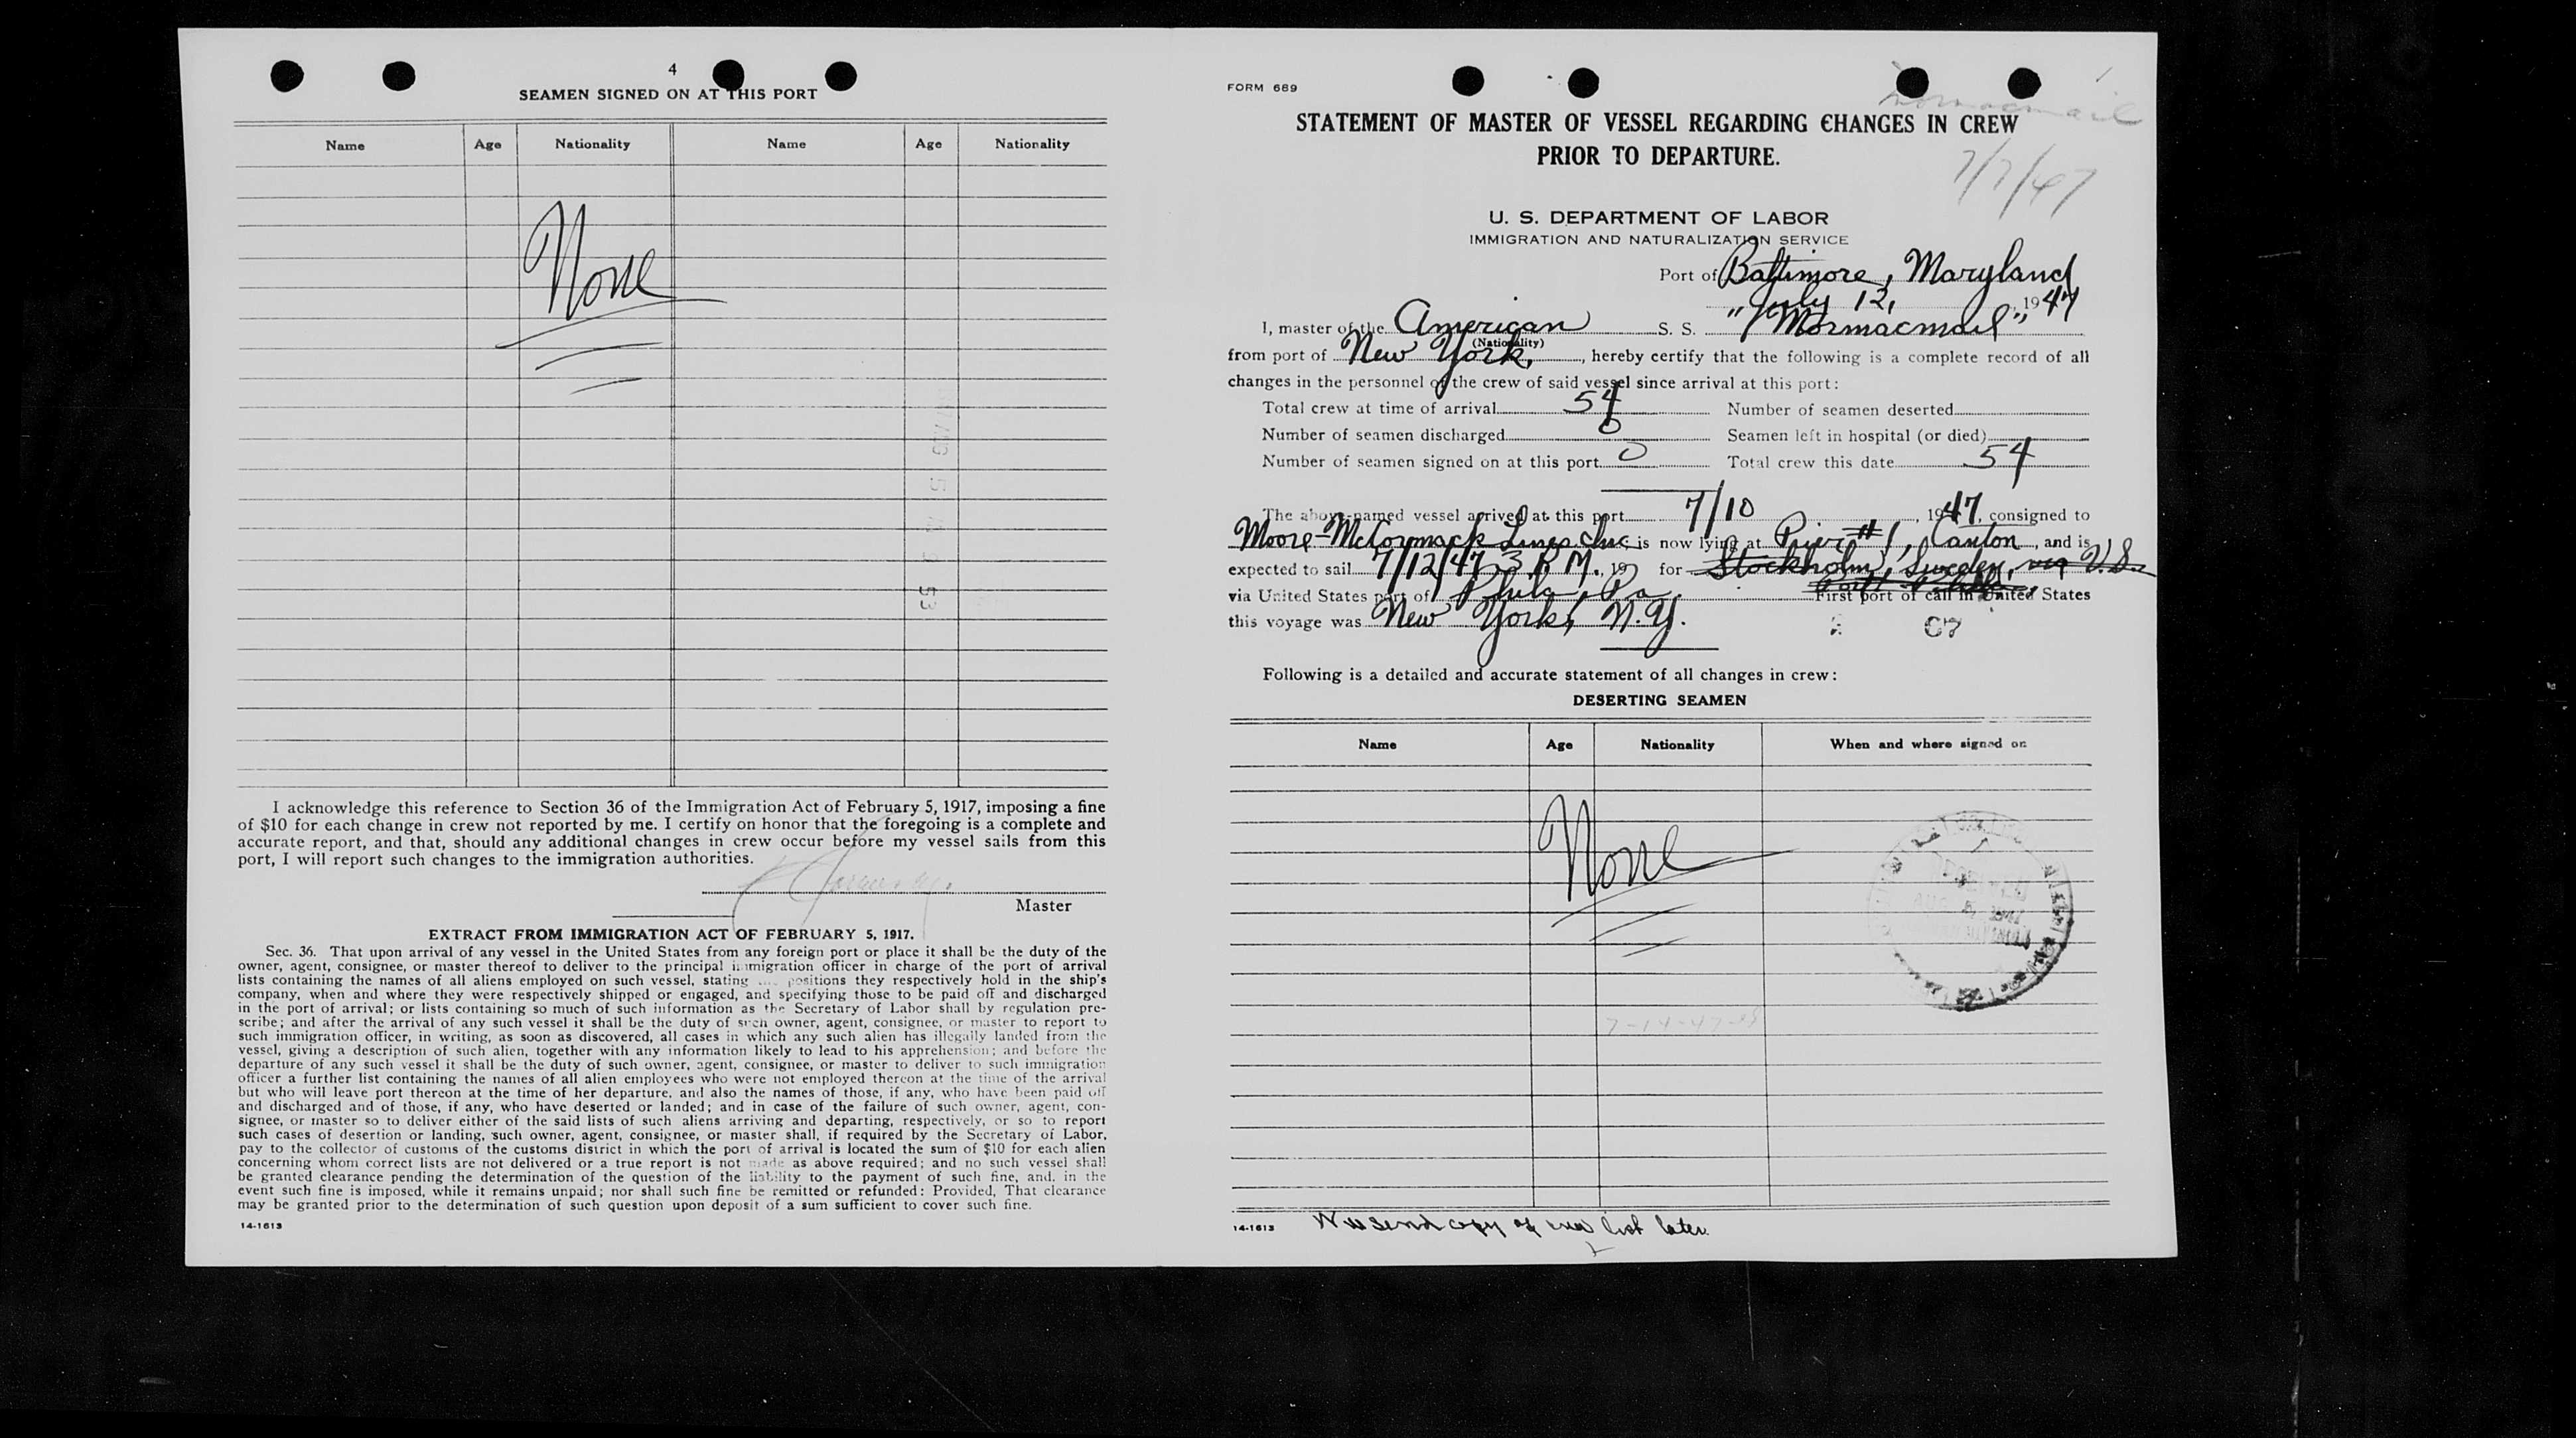 4
SEAMEN SIGNED ON AT THIS PORT
Name Age Nationality Name Age Nationality
None
I acknowledge this reference to Section 36 of the Immigration Act of February 5, 1917, imposing a fine
of $10 for each change in crew not reported by me. I certify on honor that the foregoing is a complete and
accurate report, and that, should any additional changes in crew occur before my vessel sails from this
port, I will report such changes to the immigration authorities.
Master
EXTRACT FROM IMMIGRATION ACT OF FEBRUARY 5, 1917.
Sec. 36. That upon arrival of any vessel in the United States from any foreign port or place it shall be the duty of the
owner, agent, consignee, or master thereof to deliver to the principal immigration officer in charge of the port of arrival
lists containing the names of all aliens employed on such vessel, stating the positions they respectively hold in the ship's
company, when and where they were respectively shipped or engaged, and specifying those to be paid off and discharged
in the port of arrival; or lists containing so much of such information as the Secretary of Labor shall by regulation pre-
scribe; and after the arrival of any such vessel it shall be the duty of such owner, agent, consignee, or master to report to
such immigration officer, in writing, as soon as discovered, all cases in which any such alien has illegally landed from the
vessel, giving a description of such alien, together with any information likely to lead to his apprehension; and before the
departure of any such vessel it shall be the duty of such owner, agent, consignee, or master to deliver to such immigration
officer a further list containing the names of all alien employees who were not employed thereon at the time of the arrival
but who will leave port thereon at the time of her departure, and also the names of those, if any, who have been paid off
and discharged and of those, if any, who have deserted or landed; and in case of the failure of such owner, agent, con-
signee, or master so to deliver either of the said lists of such aliens arriving and departing, respectively, or so to report
such cases of desertion or landing, such owner, agent, consignee, or master shall, if required by the Secretary of Labor,
pay to the collector of customs of the customs district in which the port of arrival is located the sum of $10 for each alien
concerning whom correct lists are not delivered or a true report is not made as above required; and no such vessel shall
be granted clearance pending the determination of the question of the liability to the payment of such fine, and, in the
event such fine is imposed, while it remains unpaid; nor shall such fine be remitted or refunded: Provided, That clearance
may be granted prior to the determination of such question upon deposit of a sum sufficient to cover such fine.
14-1613
FORM 689
Mormacmail
STATEMENT OF MASTER OF VESSEL REGARDING CHANGES IN CREW
PRIOR TO DEPARTURE.
7/7/47
U. S. DEPARTMENT OF LABOR
IMMIGRATION AND NATURALIZATION SERVICE
Port of Baltimore, Maryland
July 12, 1947
I, master of the American S. S. "Mormacmail",
(Nationality)
from port of New York, hereby certify that the following is a complete record of all
changes in the personnel of the crew of said vessel since arrival at this port:
Total crew at time of arrival 54 Number of seamen deserted
Number of seamen discharged 0 Seamen left in hospital (or died)
Number of seamen signed on at this port 0 Total crew this date 54
The above-named vessel arrived at this port 7/10, 1947, consigned to
Moore-McCormack Lines Inc. is now lying at Pier #1, Canton, and is
expected to sail 7/12/47 3 P.M., 19 for Stockholm, Sweden, via U.S.
via United States port of Phila, Pa. First port of call in United States
this voyage was New York, N.Y.
Following is a detailed and accurate statement of all changes in crew:
DESERTING SEAMEN
Name Age Nationality When and where signed on
None
7-14-47
14-1613 send copy of crew list later.